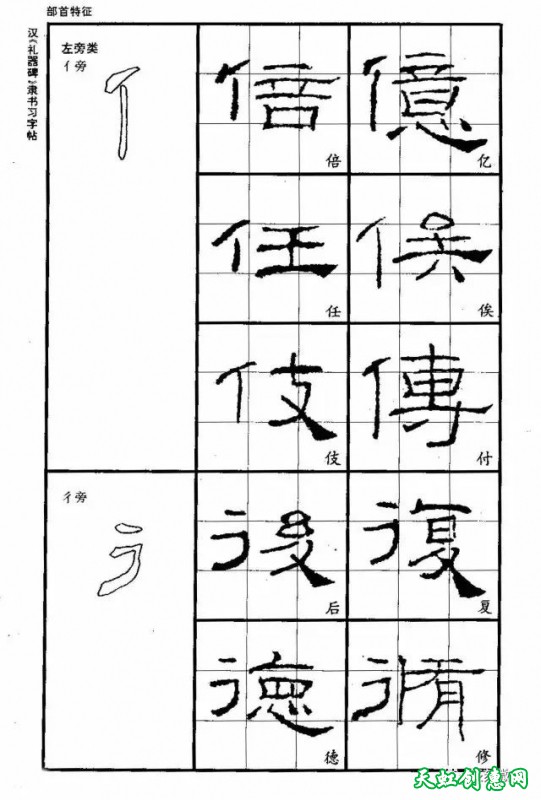 部首特征
汉《礼器碑》隶书习字帖
左旁类
亻旁
亻
倍 億
倍 亿
任 俟
任 俟
伎 傳
伎 付
彳旁
彳
後 復
后 复
德 脩
德 修
天虹创意网